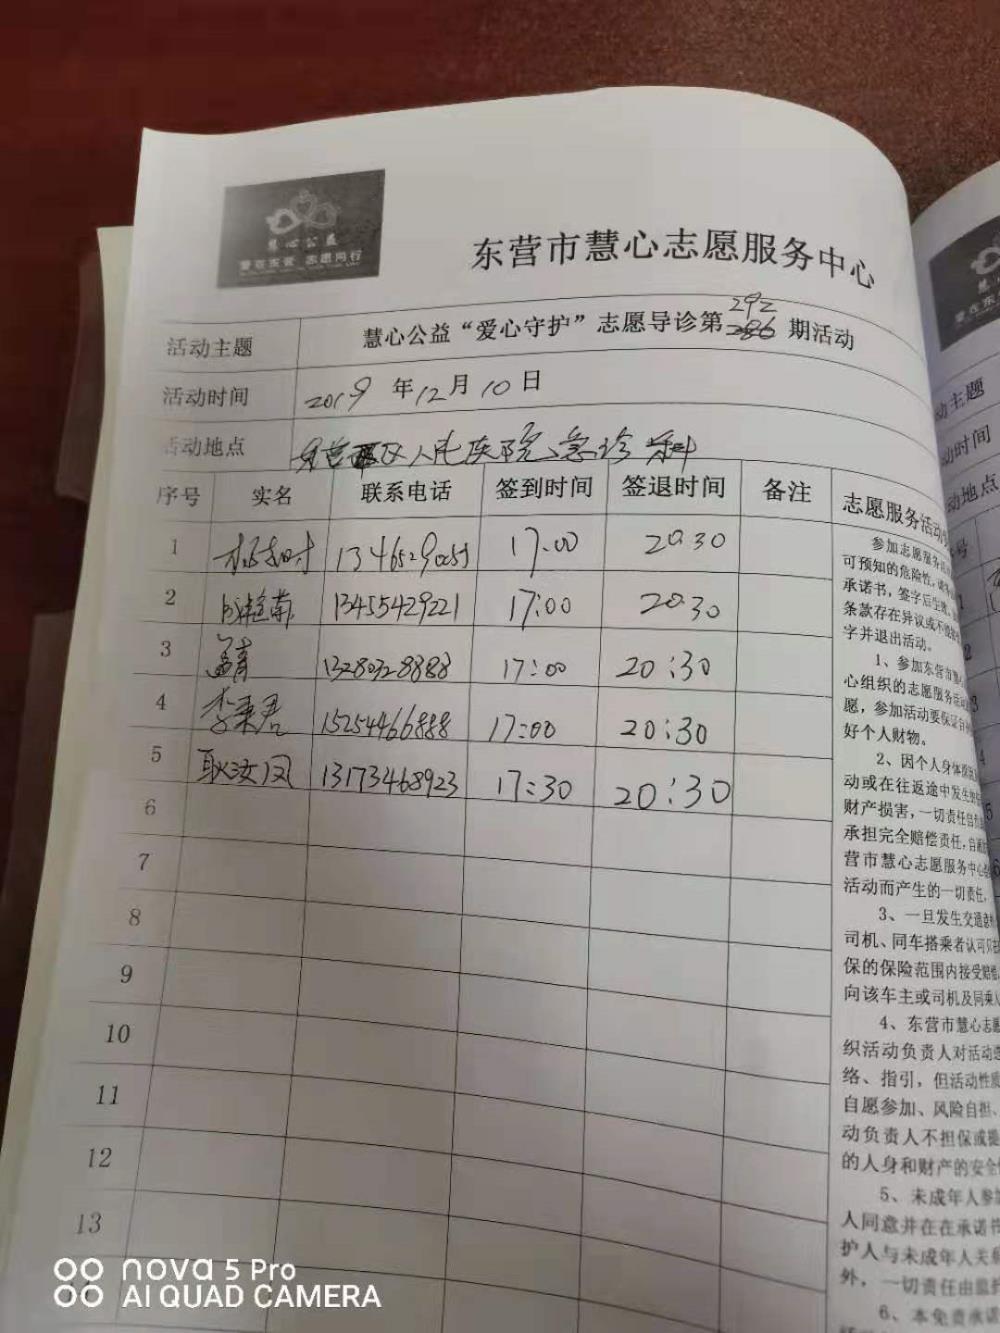 慧心公益
爱在东营 志愿同行
东营市慧心志愿服务中心
活动主题 慧心公益“爱心守护”志愿导诊第292期活动
活动时间 2019年12月10日
活动地点 人民医院急诊科
序号 实名 联系电话 签到时间 签退时间 备注 志愿服务活动
1 17:00 20:30
2 13455429221 17:00 20:30
3 17:00 20:30
4 李秉君 15254466888 17:00 20:30
5 耿汝凤 13173468923 17:30 20:30
6
7
8
9
10
11
12
13
参加志愿服务活
可预知的危险性,
承诺书,签字后生效,
条款存在异议或不
字并退出活动。
1、参加东营市慧
心组织的志愿服务活
愿,参加活动要保证
好个人财物。
2、因个人身体
动或在往返途中发生的
财产损害,一切责任
承担完全赔偿责任,
营市慧心志愿服务中心
活动而产生的一切责任,
3、一旦发生交通
司机、同车搭乘者认可
保的保险范围内接受赔
向该车主或司机及同乘人
4、东营市慧心志愿
织活动负责人对活动
络、指引,但活动性质
自愿参加、风险自担、
动负责人不担保或提
的人身和财产的安全
5、未成年人参加
人同意并在在承诺书
护人与未成年人关
外,一切责任由监护
6、本免责承诺
动主题
动时间
动地点
nova 5 Pro
AI QUAD CAMERA